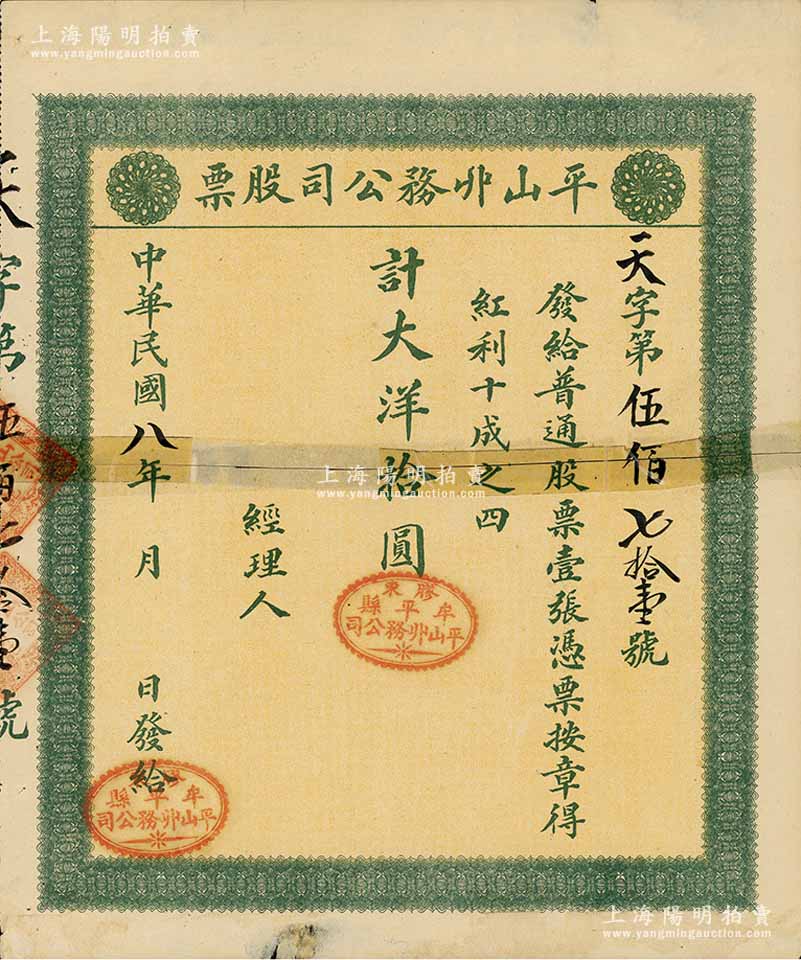 上海陽明拍賣
www.yangmingauction.com
上海陽明拍賣
www.yangmingauction.com
平山丱務公司股票
天字第伍佰七拾壹號
發給普通股票壹張憑票按章得
紅利十成之四
計大洋拾圓
經理人
中華民國八年 月 日發給
膠東
牟平縣
平山丱務公司
牟平縣
平山丱務公司
天字第伍佰七拾壹號
上海陽明拍賣
www.yangmingauction.com
上海陽明拍賣
www.yangmingauction.com